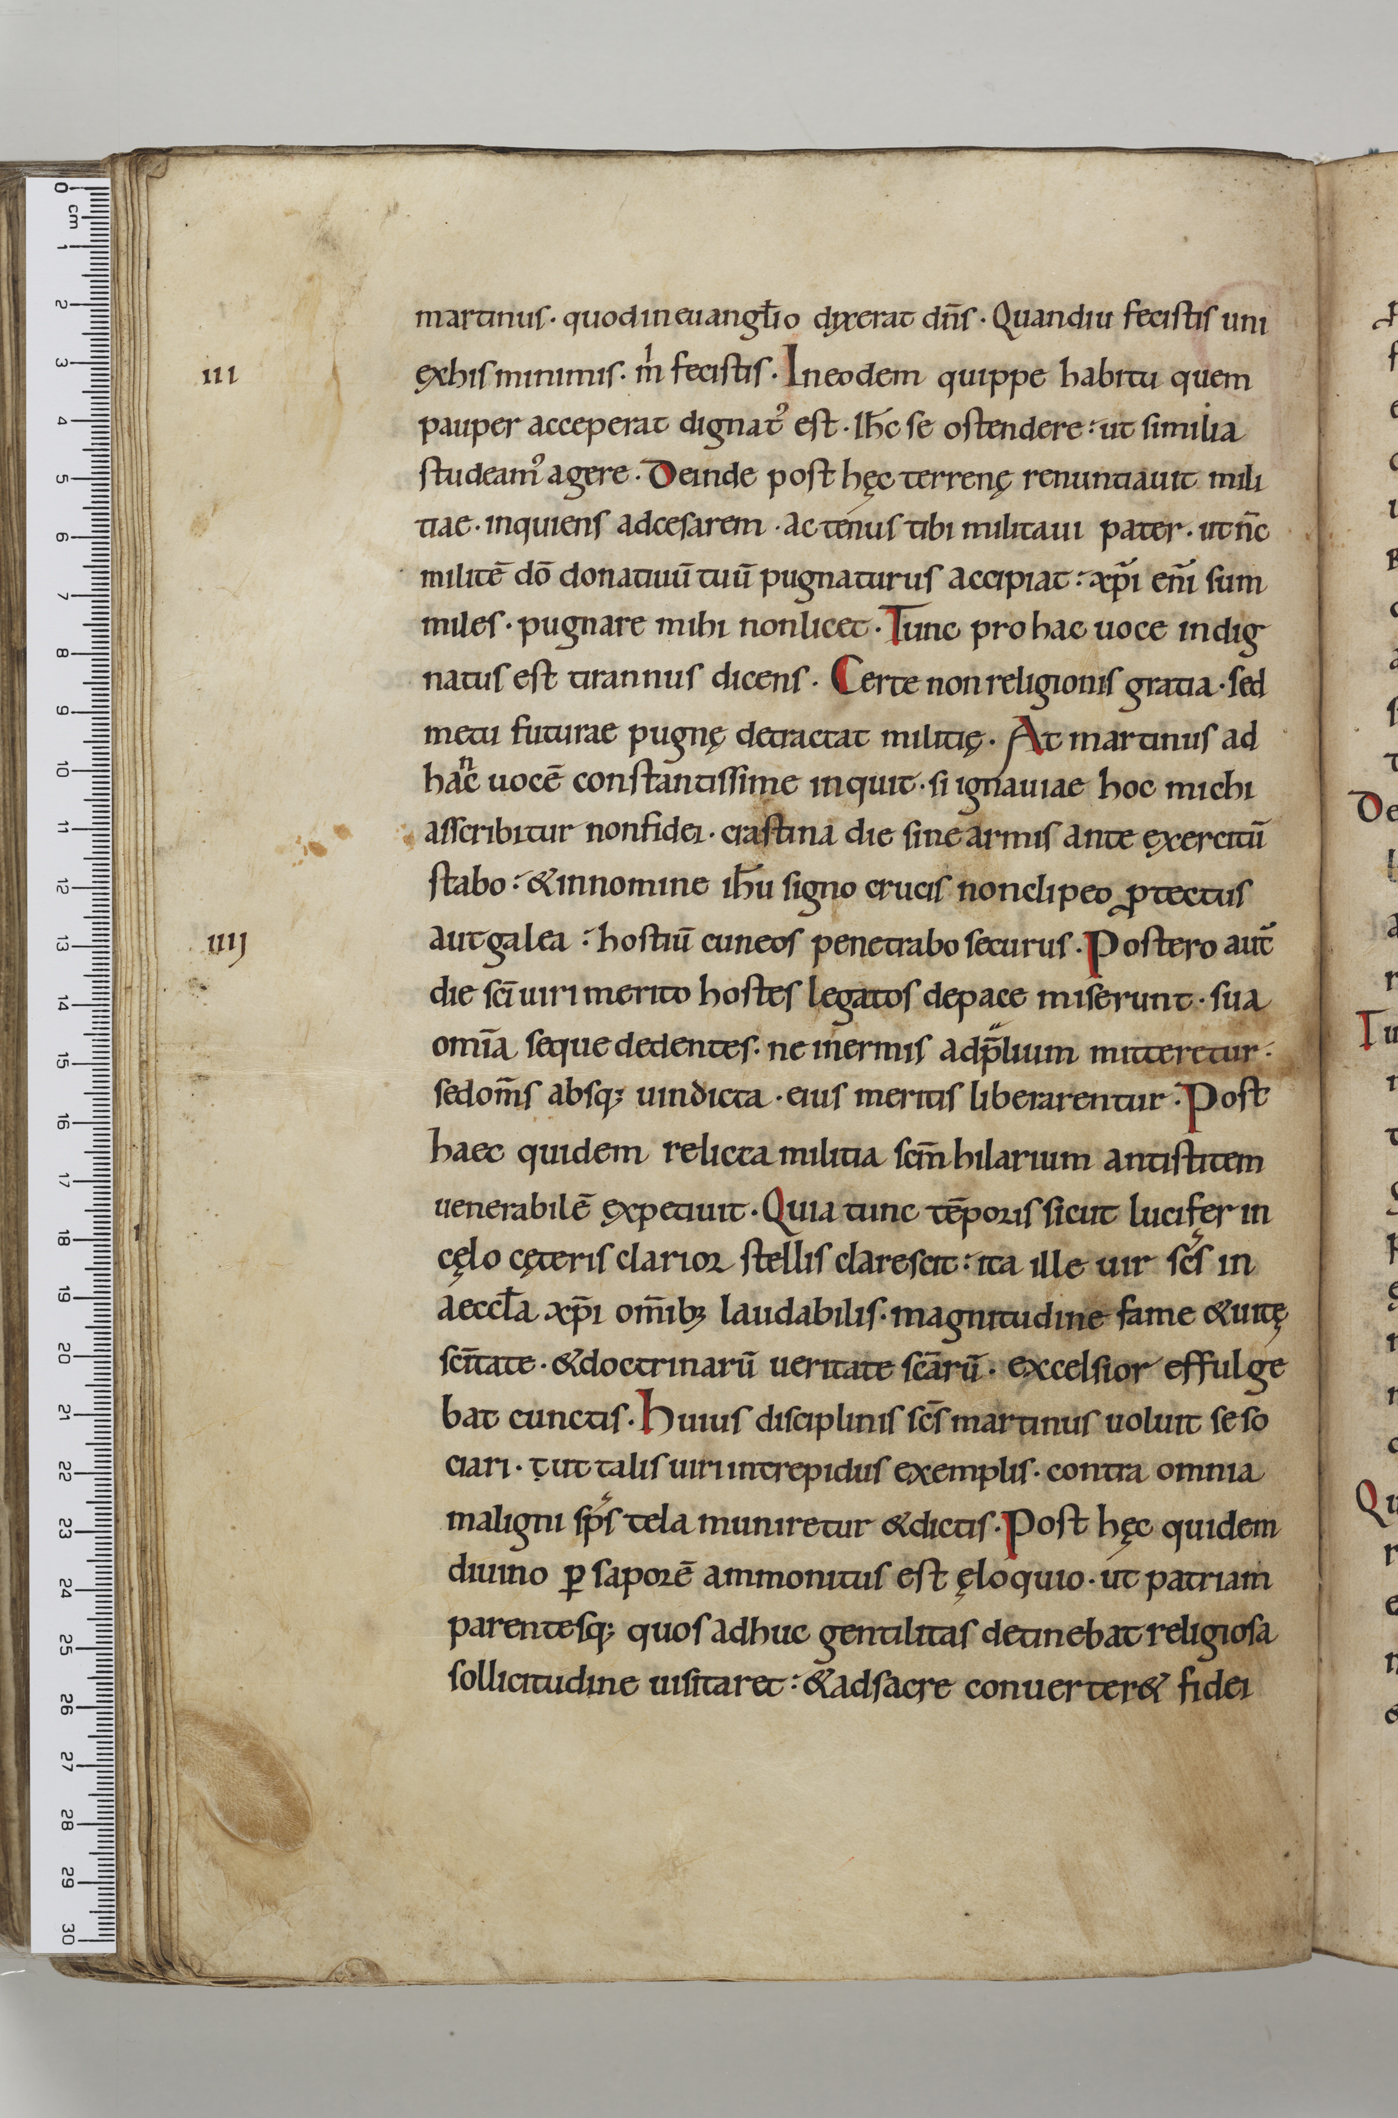 martinus· quod in euangl̄io dyxerat dn̄s· Quandiu fecistis uni
III
ęx his minimis· m̍ fecistis· In eodem quippe habitu quem
pauper acceperat dignat᾽ est· Ih̄c se ostendere: ut similia
studeam᾽ agere· Deinde post hęc terrenę renuntiauit mili
tiae· inquiens ad cesarem· ac tenus tibi militaui pater· ut nc̄
militē dō donatiuū tuū pugnaturus accipiat: xp̄i eni̅ sum
miles· pugnare mihi non licet· Tunc pro hac uoce indig
natus est tirannus dicens· Certe non religionis gratia· sed
metu futurae pugnę detractat militię· At martinus ad
hāc uocē constantissime inquit· si ignauiae hoc michi
asscribitur non fidei· crastina die sine armis ante ęxercitū
stabo: & in nomine ih̄u signo crucis non clipeo ꝓtectus
IIIJ
aut galea: hostiū cuneos penetrabo securus· Postero aut̄
die sci̅ uiri merito hostes legatos de pace miserunt· sua
omi̅a seque dedentes· ne inermis ad p̄lium mitteretur·
sed om̄s absq; uindicta· eius meritis liberarentur· Post
haec quidem relicta militia scm̄ hilarium antistitem
uenerabilē ęxpetiuit· Quia tunc tēporis sicut lucifer in
cęlo cęteris clarior stellis clarescit: ita ille uir sc̄s in
aeccl̄a xp̄i om̄ib; laudabilis· magnitudine fame & uitę
sci̅tate· & doctrinarū ueritate scārū· excelsior effulge
bat cunctis· Huius disciplinis sc̄s martinus uoluit se so
ciari· ut talis uiri intrepidus exemplis· contra omnia
maligni sp̄s tela muniretur & dictis· Post hęc quidem
diuino ꝑ saporē ammonitus est ęloquio· ut patriam
parentesq; quos adhuc gentilitas detinebat religiosa
sollicitudine uisitaret: & ad sacre conuerter& fidei